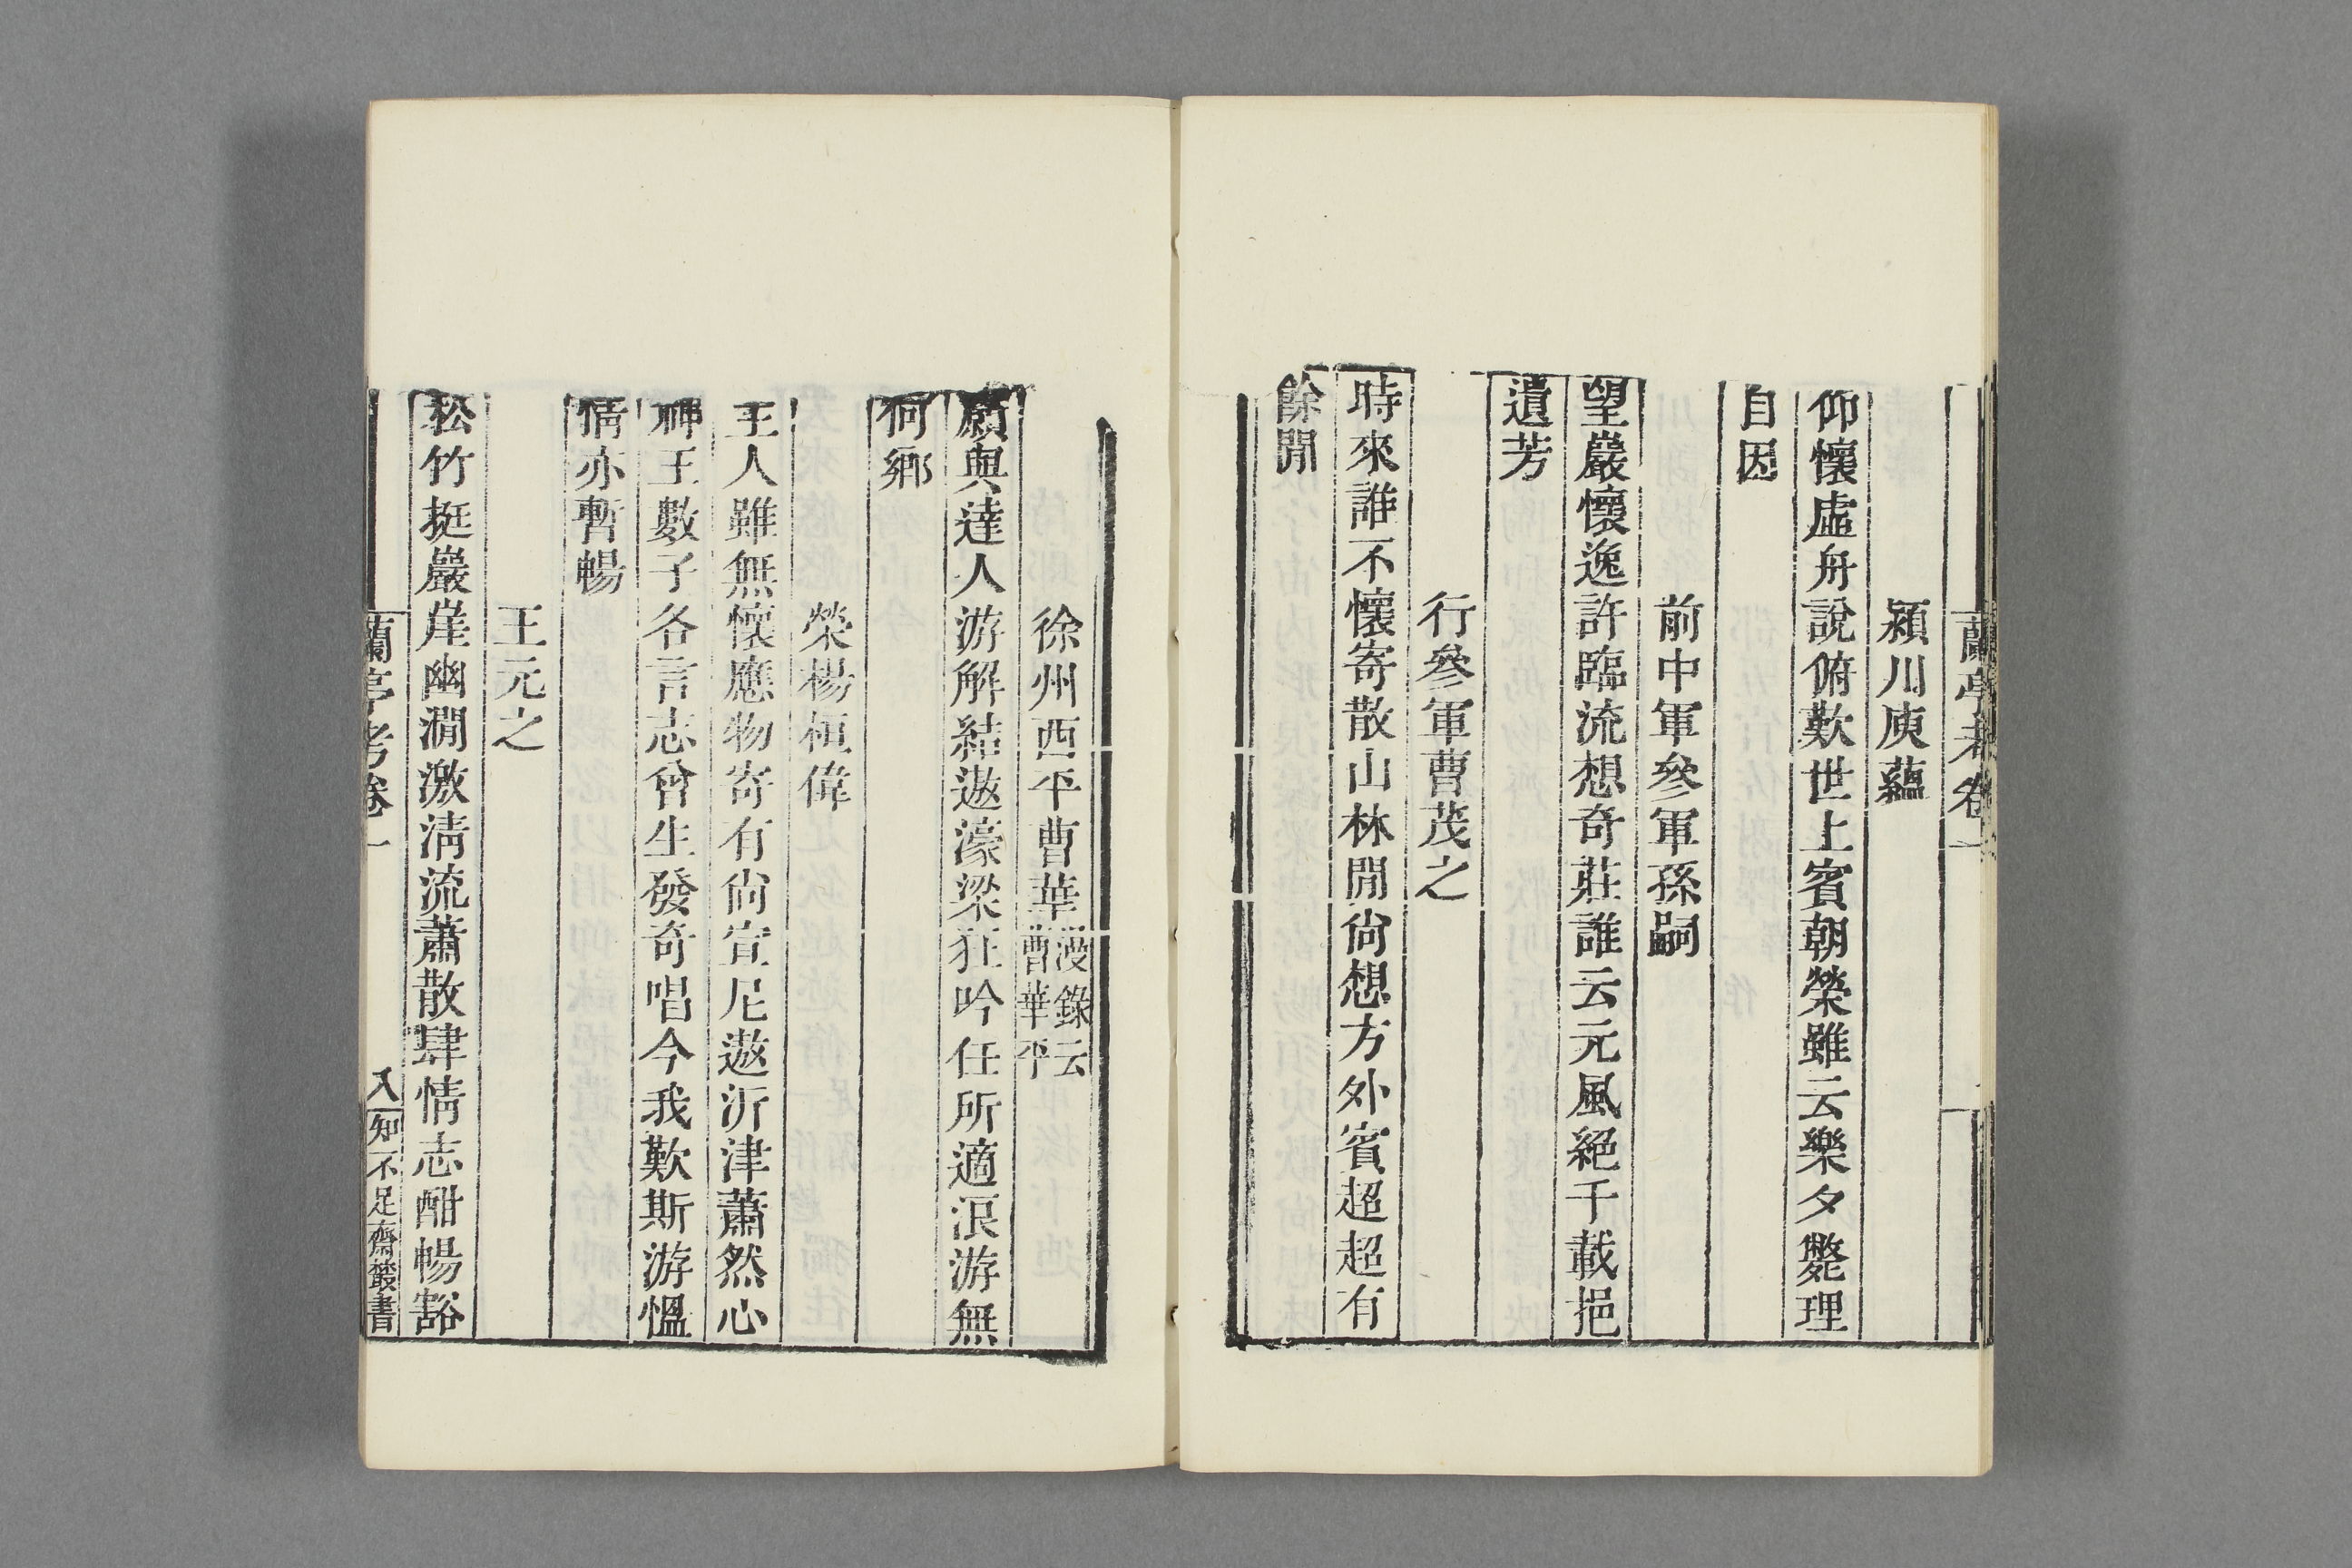 蘭亭考卷一
潁川庾蘊
仰懷虛舟說俯歎世上賓朝榮雖云樂夕斃理
自因
前中軍參軍孫嗣
望巖懷逸許臨流想奇莊誰云元風絕千載挹
遺芳
行參軍曹茂之
時來誰不懷寄散山林閒尙想方外賓超超有
餘閒
徐州西平曹華漫錄云曹華平
願與達人游解結遨濠梁狂吟任所適浪游無
何鄉
榮楊桓偉
主人雖無懷應物寄有尙宣尼遨沂津蕭然心
神王數子各言志曾生發奇唱今我歎斯游慍
情亦暫暢
王元之
松竹挺巖崖幽澗激淸流蕭散肆情志酣暢豁
蘭亭考卷一
入
知不足齋叢書